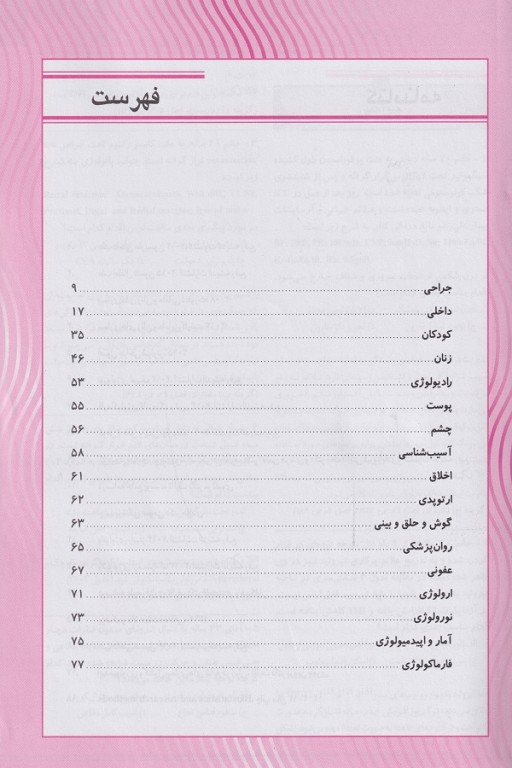 فهرست
جراحی ........ ۹
داخلی ........ ۱۷
کودکان ........ ۳۵
زنان ........ ۴۶
رادیولوژی ........ ۵۳
پوست ........ ۵۵
چشم ........ ۵۶
آسیب‌شناسی ........ ۵۸
اخلاق ........ ۶۱
ارتوپدی ........ ۶۲
گوش و حلق و بینی ........ ۶۳
روان‌پزشکی ........ ۶۵
عفونی ........ ۶۷
ارولوژی ........ ۷۱
نورولوژی ........ ۷۳
آمار و اپیدمیولوژی ........ ۷۵
فارماکولوژی ........ ۷۷